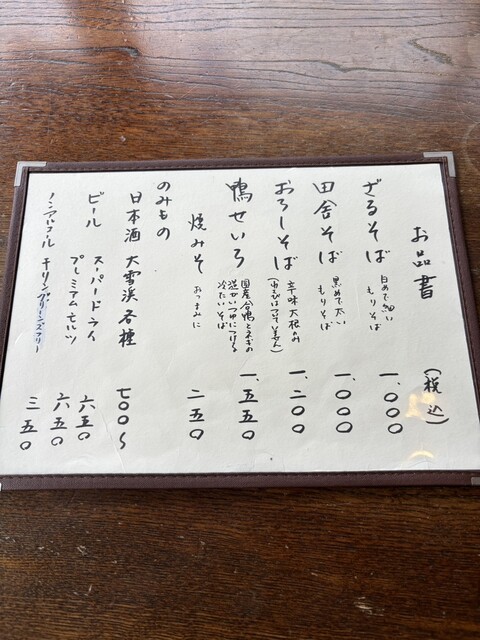 お品書 (税込)
ざるそば 白めで細い もりそば 一、〇〇〇
田舎そば 黒めで太い もりそば 一、〇〇〇
おろしそば 辛味大根のみ 一、二〇〇
鴨せいろ 国産合鴨とネギの 温かいつゆにつける 冷たいそば 一、五五〇
焼みそ おつまみに 二五〇
のみもの
日本酒 大雪渓 各種 七〇〇〜
ビール スーパードライ 六五〇
プレミアムモルツ 六五〇
ノンアルコール キリングリーンズフリー 三五〇